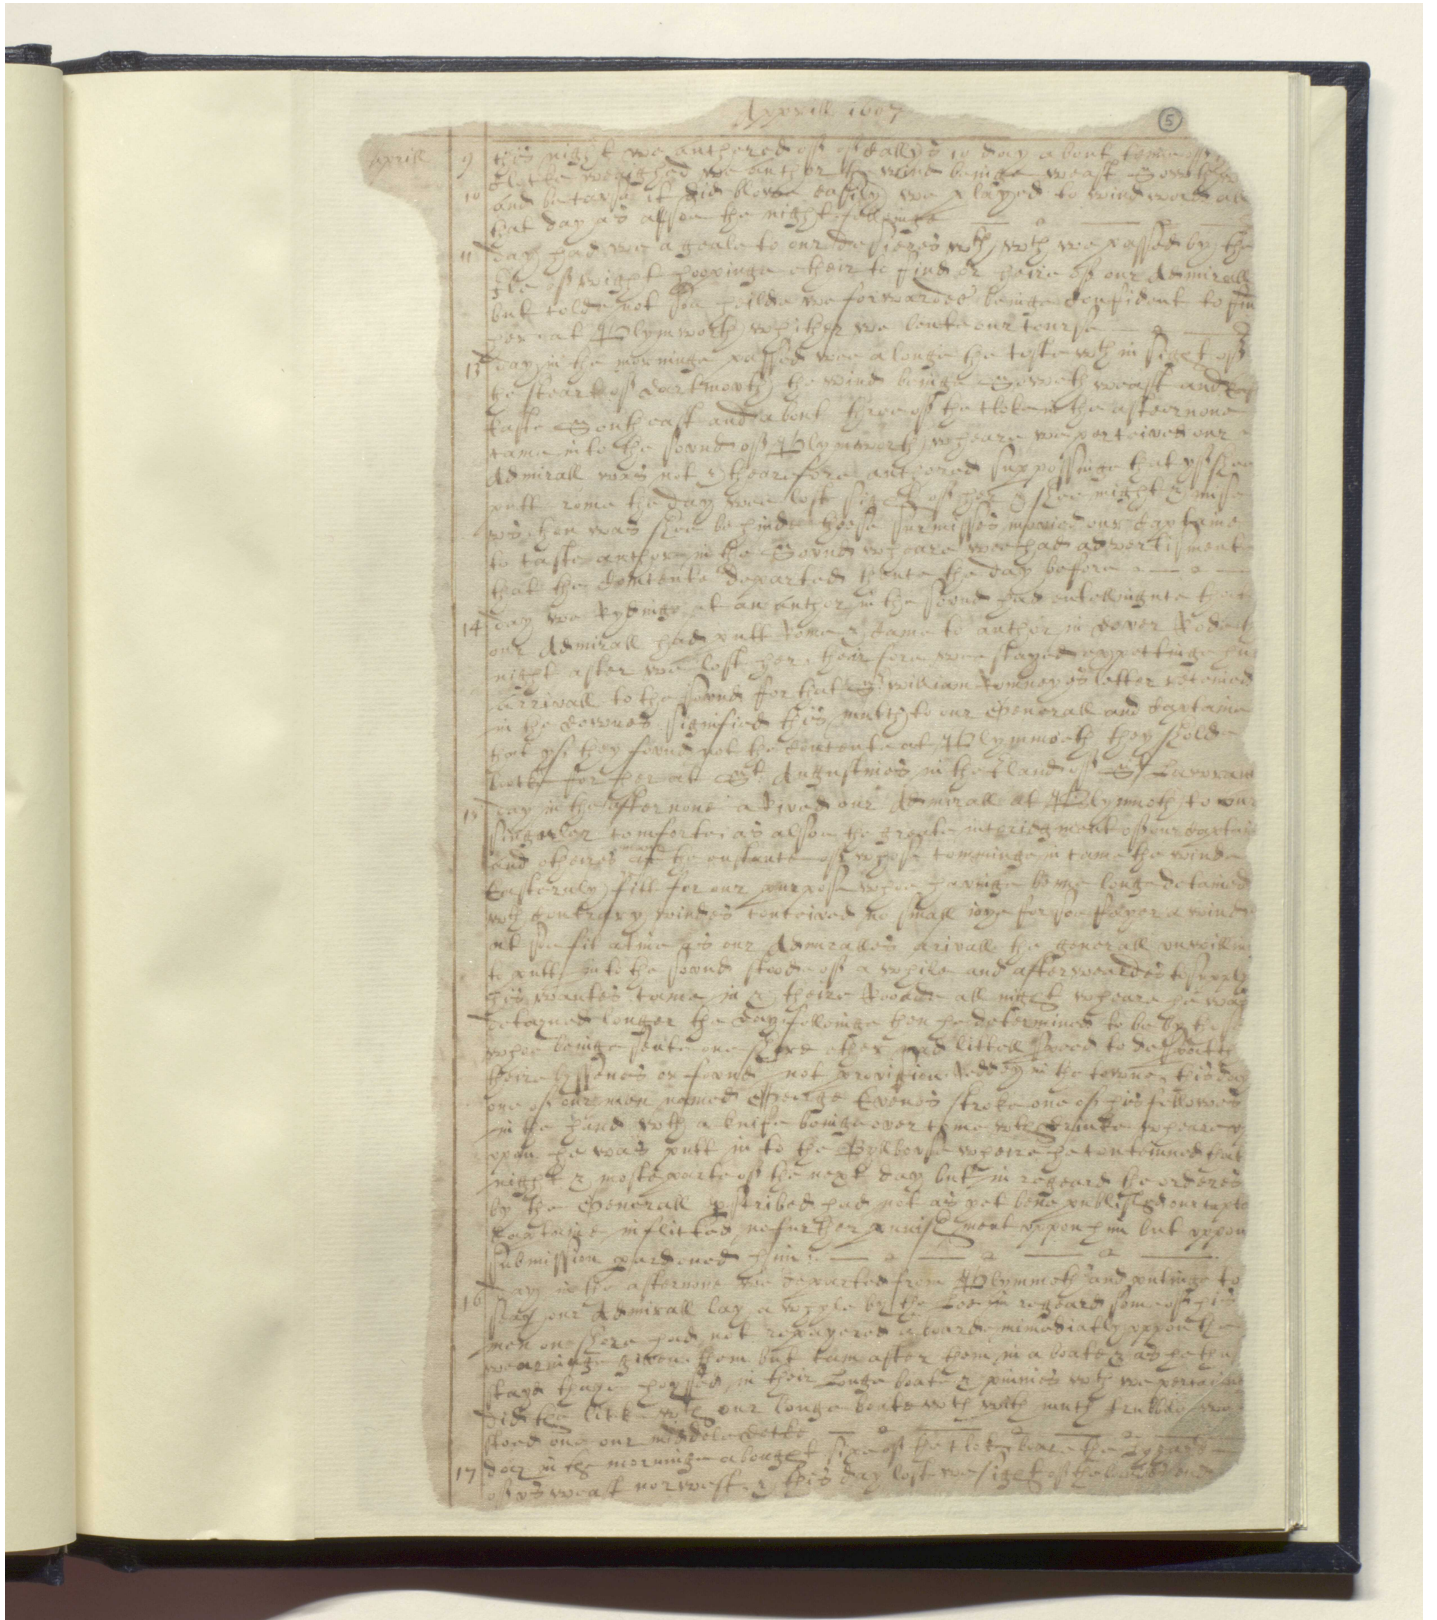 Apprill 1607
5
Aprill 9 this night we anchored of of Callys 10 day about tenn of
Clocke weighed we anchor the wind beinge weast Sowthw
10 and because it did blowe easily we playd to windward all
that day as allsoe the night followinge
11 day had wee a geale to our desieres wth wch we passed by the
Ile of wight hoopinge their to find or heire of our Admirall
but colde not soe heilde we forwardes beinge Confident to fin
her at Plymworth whither we bente our course
13 day in the morninge passed wee alonge the coste wth in sight of
the steart of dartmorth the wind beinge Soweth weast and
easte South east and about three of the cloke in the afternone
came into the sound of Plymworth wheare we perceived our
Admirall was not, thearefore anchored suppossinge that yf shee
putt rome the day wee lost sight of her & shee might misse
us then was shee behinde theese surmisses moved our Captaine
to caste anchor in the Sound wheare wee had advertisment
that the Contente departed thence the day before
14 day we rydinge at an anchor in the sound had entelligence that
our Admirall had putt rome & came to anchor in dover Rode the
night after we lost her theirfore wee stayed exspectinge his
arrivall to the sound for that Sr william Romneyes letter receiued
in the downes signified thus mutch to our Generall and Captaine
that yf they found not the Contente at Plymmoth they sholde
looke for her at St Augustines in the Iland of St Lawran
15 day in the afternone arived our Admirall at Plymmoth to our
singuler comforte as alsoe the greate incoridgment of our Captai
and otheires at the enstante of whose comminge in came the winde
Easternly fitt for our purpose whoe havinge beene longe detained
wth Contrary windes conceived no small ioye for soe fayer a winde
at soe fit atime as our Admiralles arivall the generall unwillin
to putt in to the sound stoode of a while and afterweardes to supply
his wantes came in & theire Roade all night wheare he was
detayned longer the day followinge then he determined to be by the
whoe beinge sente one shore ether mad littell speed to dispatch
theire byssenes or found not provision reddy in the towne, this day
one of our men named George Evenes stroke one of his fellowes
in the hand wth a knife beinge over come wth drinke wheare
upon he was putt in to the Bylbowse wheire he conteinued that
night & moste parte of the next day but in regeard the orderes
by the Generall prscribed had not as yet bene publisshed our
Captaine inflicted no further punishment uppon him but uppon
submission pardoned him
16 day in the afternone we departed from Plymmoth and putinge to
sea our Admirall lay a whyle by the Lee in regeard some of his
men one shore had not repayered aboarde immediatly uppon the
wearninge given them but cam after them in a boate & as he thu
stayd hoyssed in their Longe boate & pinnis wch we perceivinge
did the like wth our longe boate wch with mutch trubble we
stoed one our middel decke
17 day in the morninge abought sixe of the cloke beare the Lyzard
of us weast norwest & this day lost we sight of the